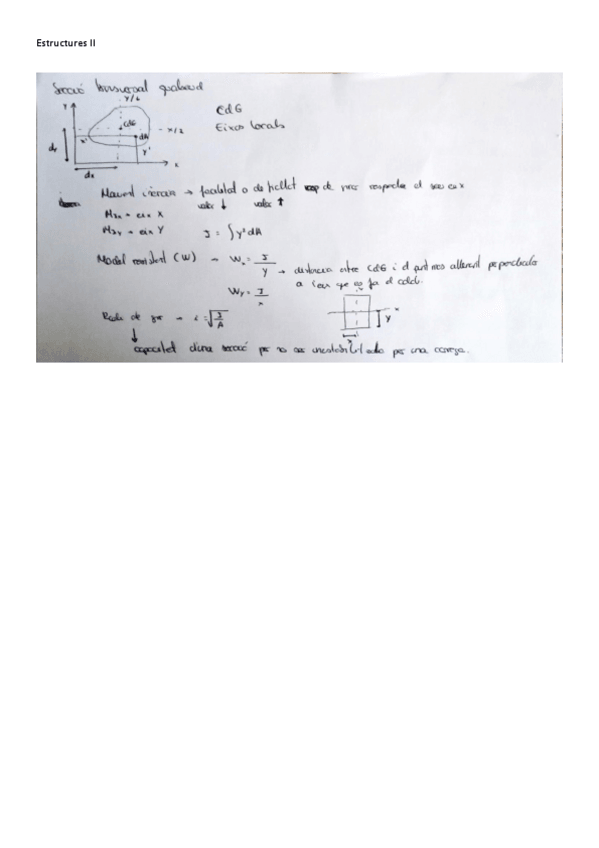 Estructures II
Secció transversal qualsevol
Y
Y/2
CdG
CdG
Eixos locals
x/2
dA
x'
y'
dy
x
dx
Moment d'inèrcia → facilitat o dificultat de girar respecte el seu eix
valor ↓ valor ↑
= eix X
= eix Y J = ∫ y² dA
Mòdul resistent (W) → Wx = J/y → distància entre CdG i el punt més allunyat perpendicular
a l'eix que es fa el càlcul.
Wy = J/x
x
y
x
Radi de gir → i = √J/A
capacitat d'una secció per no ser inestabilitzada per una càrrega.